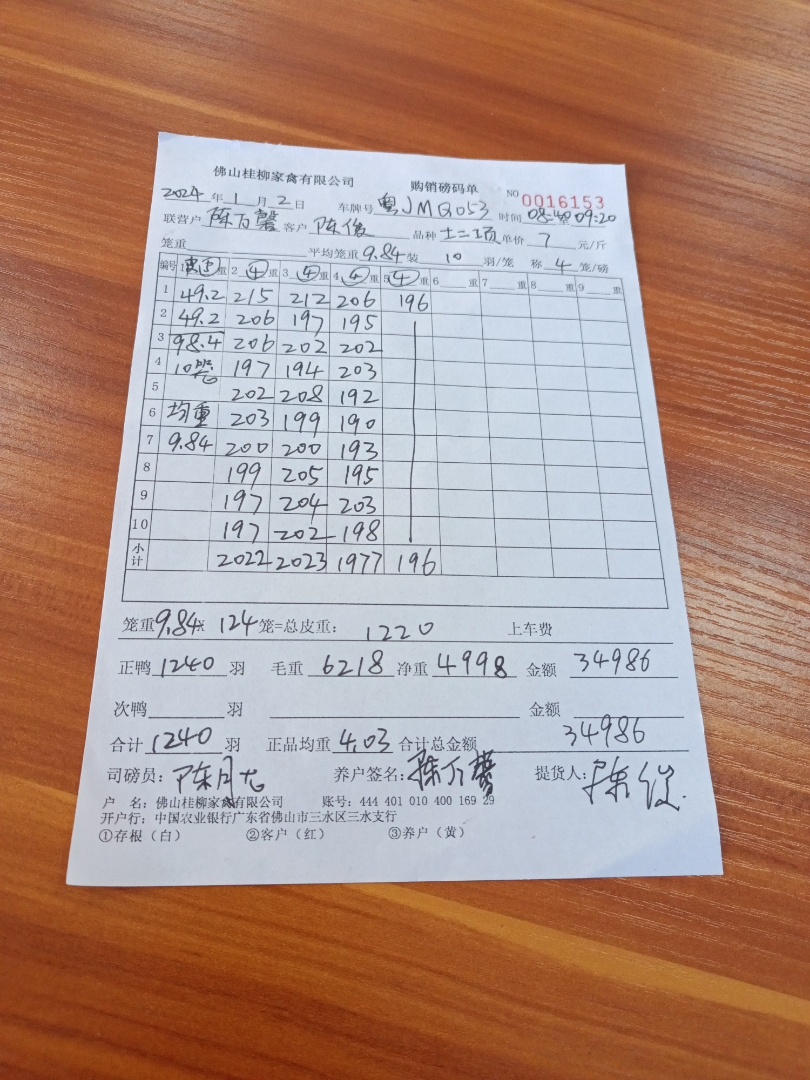 佛山桂柳家禽有限公司 购销磅码单 NO 0016153
2024年1月2日 车牌号 粤JMQ053 时间 08:40至09:20
联营户 陈万馨 客户 陈俊 品种 土二项 单价 7 元/斤
笼重 平均笼重 9.84 装 10 羽/笼 称 4 笼/磅
编号 1 重 2 ④ 重 3 ④ 重 4 ④ 重 5 ④ 重 6 重 7 重 8 重 9 重
1 49.2 215 212 206 196
2 49.2 206 197 195
3 98.4 206 202 202
4 10笼 197 194 203
5 202 208 192
6 均重 203 199 190
7 9.84 200 200 193
8 199 205 195
9 197 204 203
10 197 202 198
小计 2022 2023 1977 196
笼重 9.84 × 124 笼=总皮重: 1220 上车费
正鸭 1240 羽 毛重 6218 净重 4998 金额 34986
次鸭 羽 金额
合计 1240 羽 正品均重 4.03 合计总金额 34986
司磅员: 陈月 养户签名: 陈万馨 提货人: 陈俊
户 名: 佛山桂柳家禽有限公司 账号: 444 401 010 400 169 29
开户行: 中国农业银行广东省佛山市三水区三水支行
①存根（白） ②客户（红） ③养户（黄）